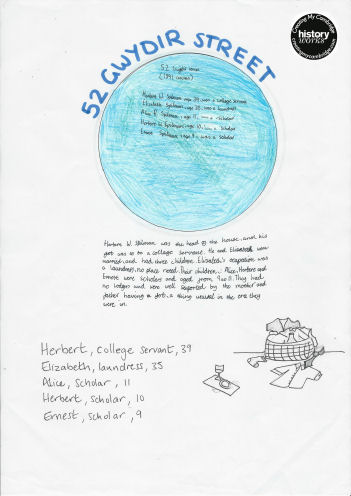 Creating My Cambridge
history
works
creatingmycambridge.com
52 GWYDIR STREET
52 Gwydir Street
(1891 census)
Herbert W. Spelman, age 39, was a college servant
Elizabeth Spelman, age 35, was a laundress
Alice E Spelman, age 11, was a scholar
Herbert W Spelman, age 10, was a scholar
Ernest Spelman, age 9, was a scholar
Herbert W. Spelman was the head of the house, and his
job was as a college servant. He and Elizabeth were
married, and had three children. Elizabeth's occupation was
a laundress, no place noted. Their children: Alice, Herbert and
Ernest were scholars and aged from 9 to 11. They had
no lodgers and were well supported by the mother and
father having a job, a thing unusual in the era they
were in.
Herbert, college servant, 39
Elizabeth, laundress, 35
Alice, scholar, 11
Herbert, scholar, 10
Ernest, scholar, 9